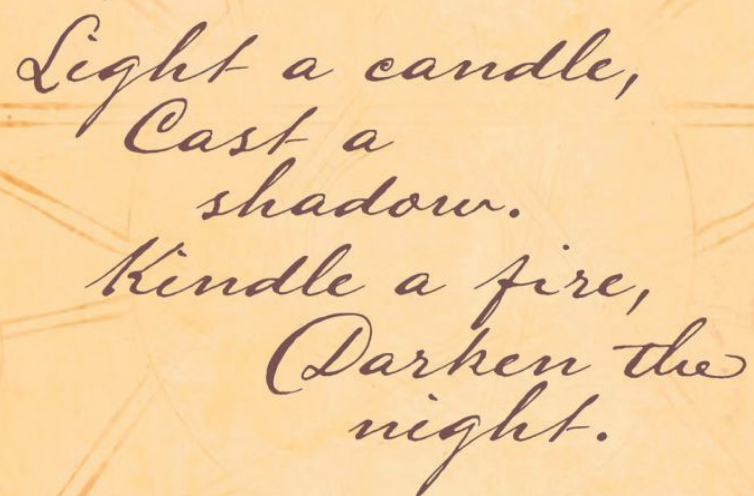 Light a candle,
Cast a
shadow.
Kindle a fire,
Darken the
night.